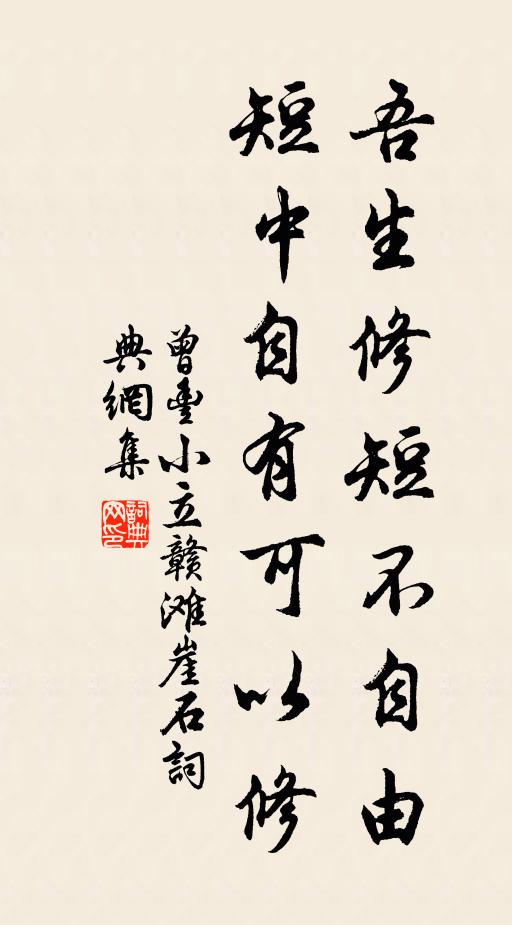 吾生修短不自由
短中自有可以修
曾豊小立赣滩崖石詞
典網集
詞典网印